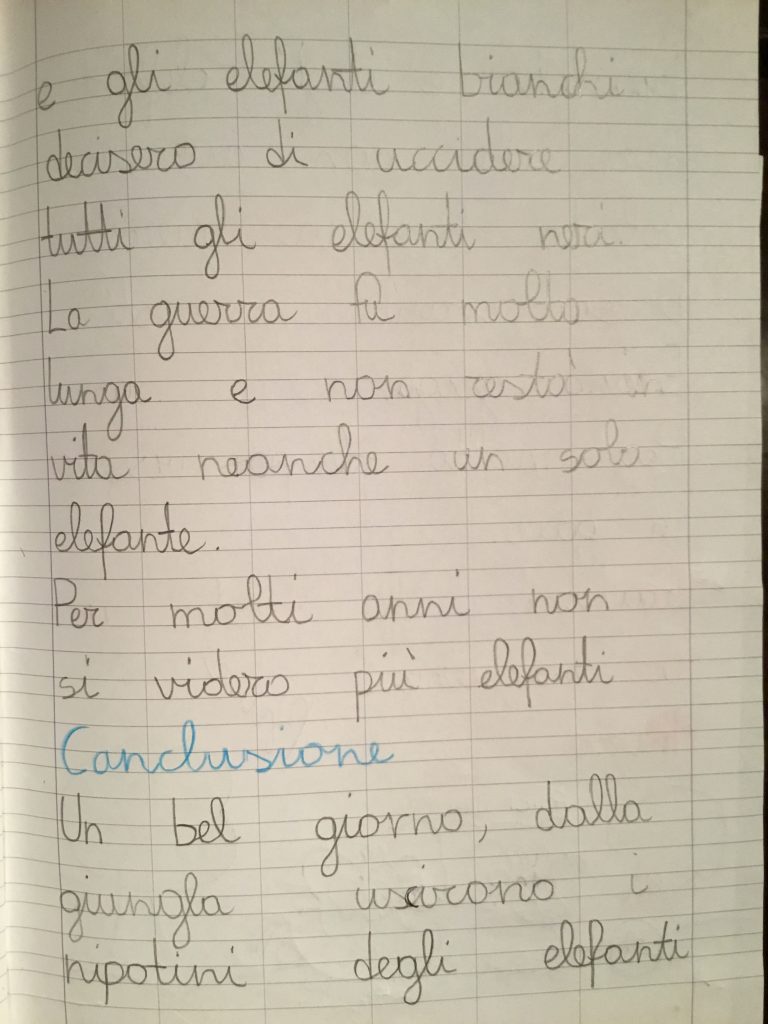 e gli elefanti bianchi
decisero di uccidere
tutti gli elefanti neri.
La guerra fu molto
lunga e non restò in
vita neanche un solo
elefante.
Per molti anni non
si videro più elefanti
Conclusione
Un bel giorno, dalla
giungla uscirono i
nipotini degli elefanti